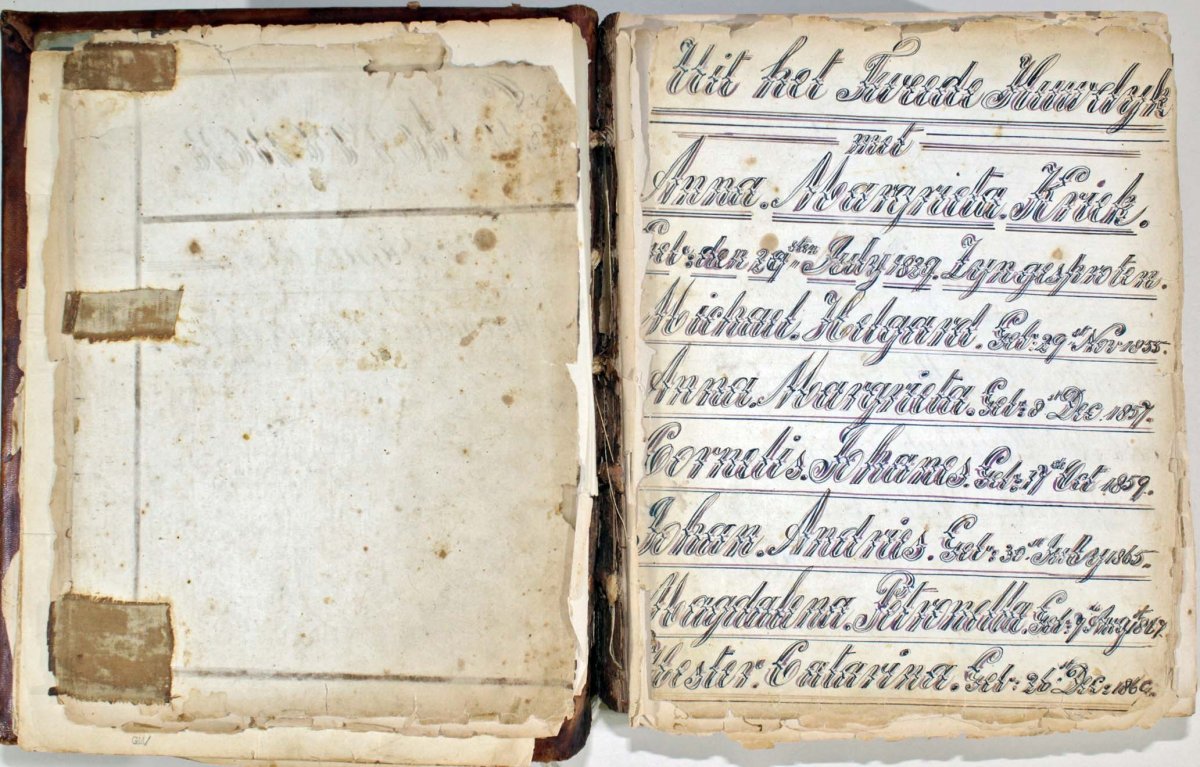 Uit het Twede Huwrdyk
met
Anna. Margrieta. Krick.
Geb: den 29sten July 1829. Zyn gesproten.
Michael. Helgard. Geb: 29st Nov 1855.
Anna. Margrieta. Geb: 8st Dec. 1857.
Cornelis. Johanes. Geb: 17de Oct 1859.
Johan. Andries. Geb: 30st July 1865.
Magdalena. Petronella. Geb: 9de
Hester. Catarina. Geb: 26st Dec: